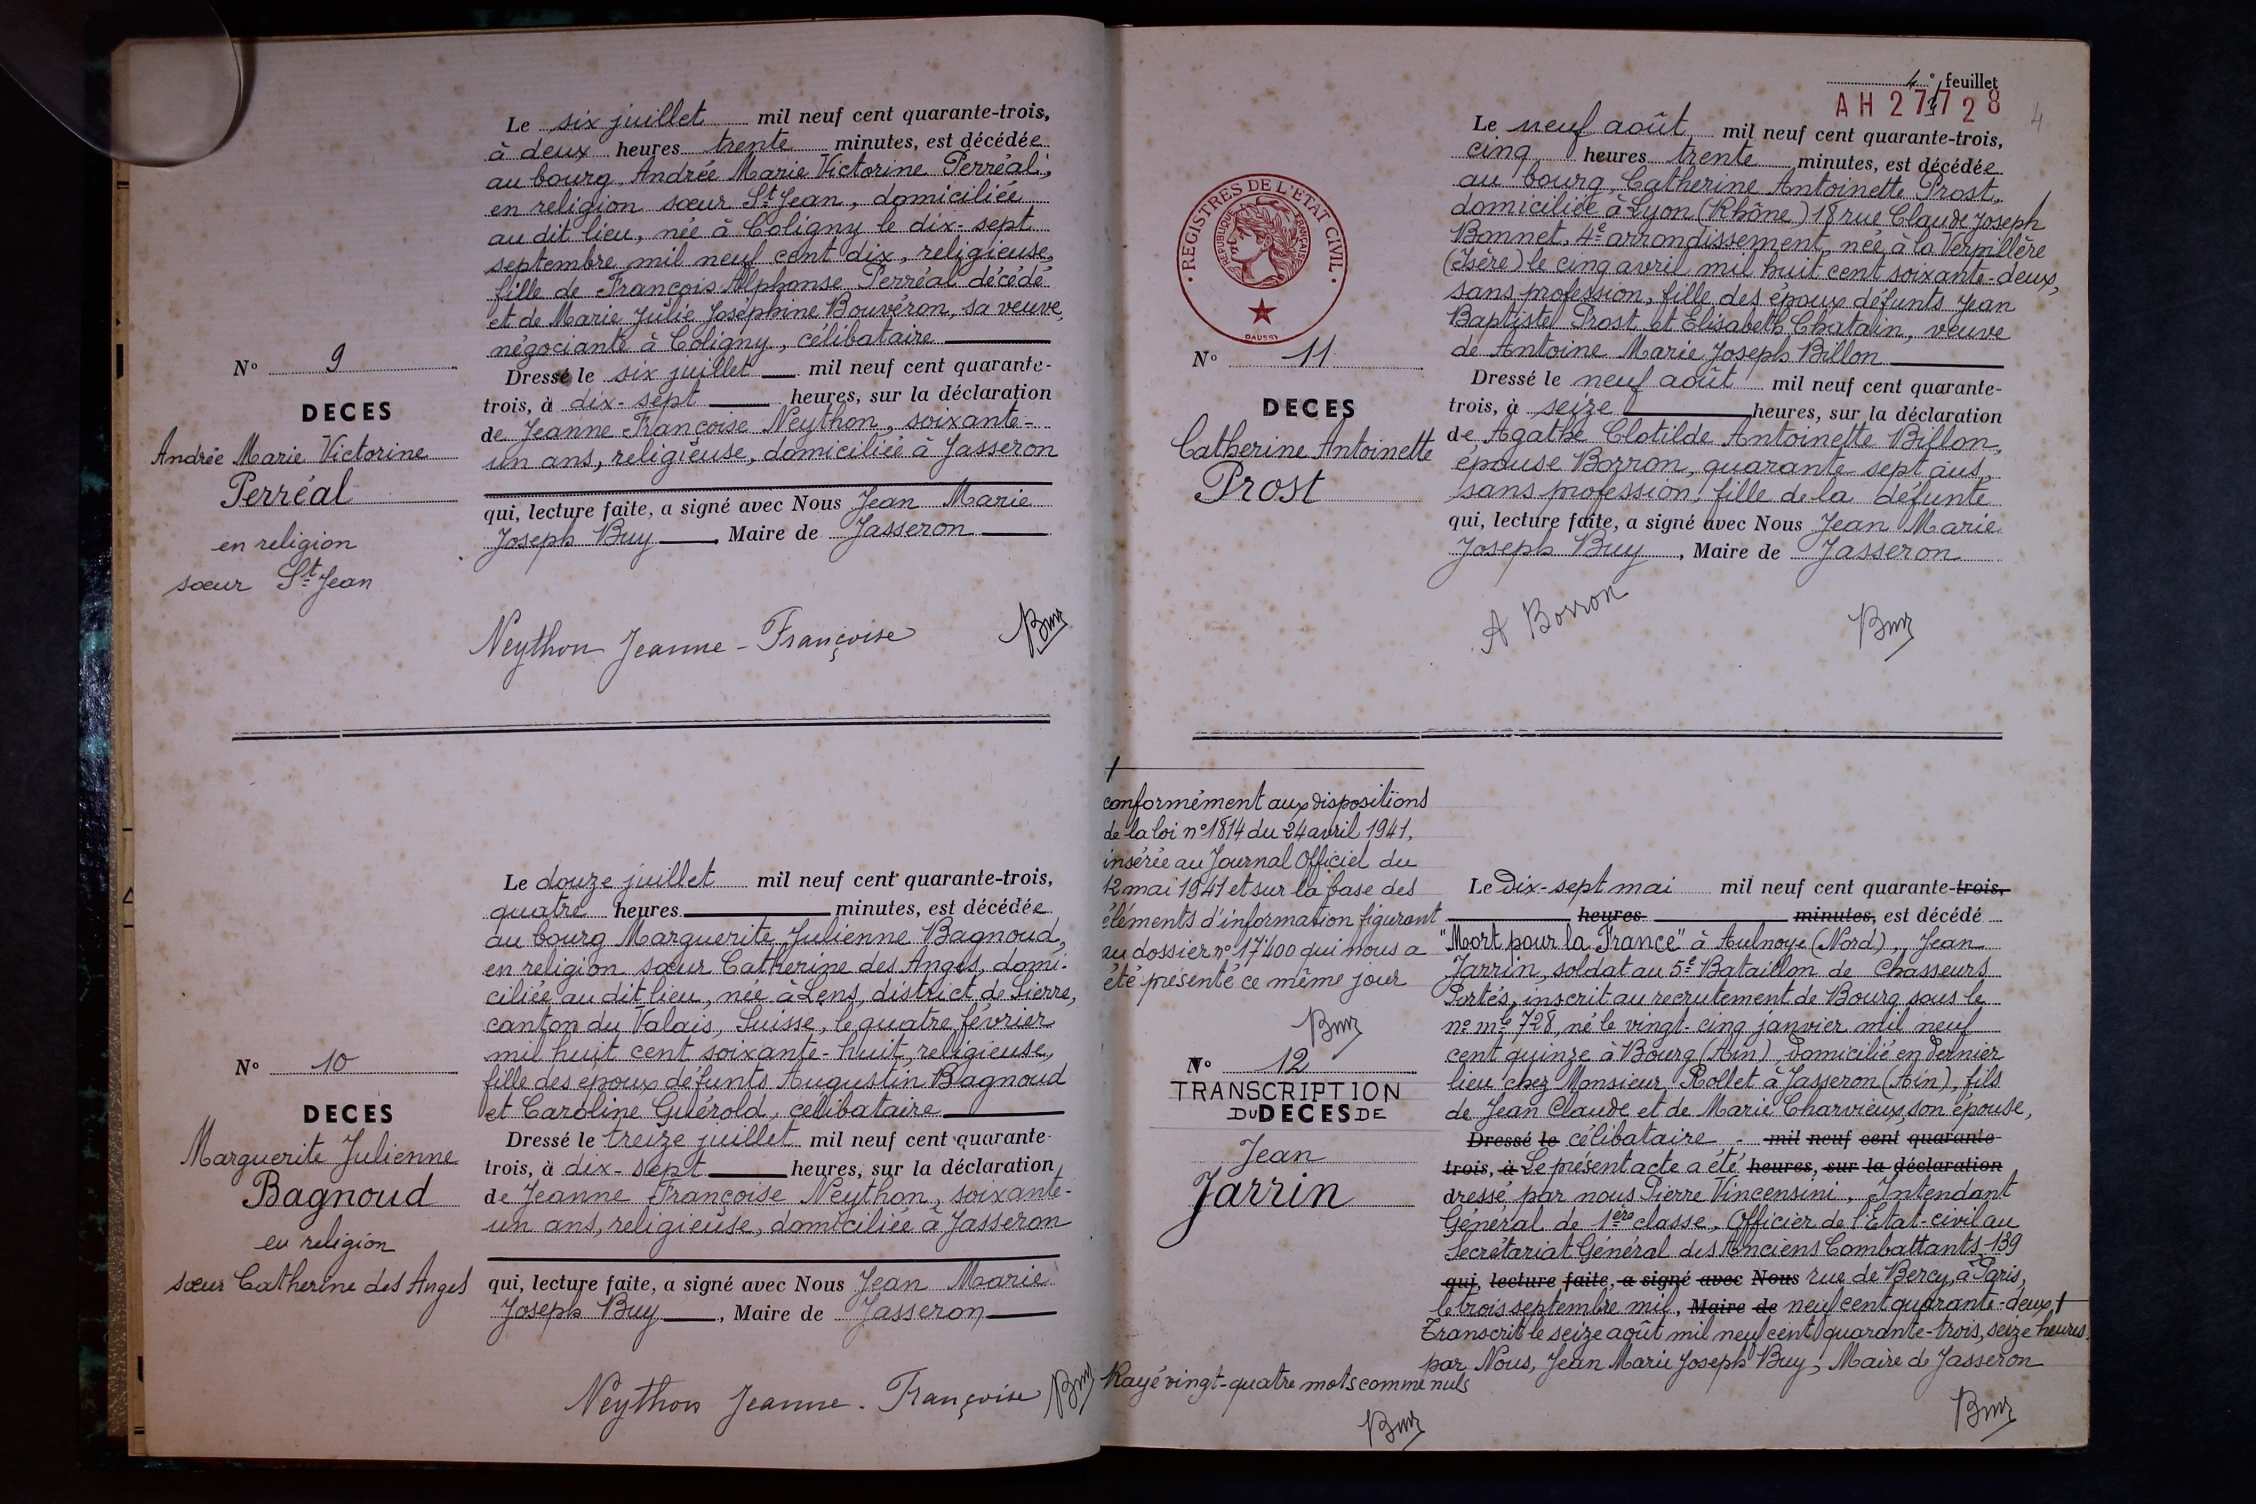 Le six juillet mil neuf cent quarante-trois,
à deux heures trente minutes, est décédée
au bourg, Andrée Marie Victorine Perréal,
en religion sœur St Jean, domiciliée
au dit lieu, née à Coligny le dix-sept
septembre mil neuf cent dix, religieuse,
fille de François Alphonse Perréal décédé
et de Marie Julie Joséphine Bouvéron, sa veuve,
négociante à Coligny, célibataire
Dressé le six juillet mil neuf cent quarante-
trois, à dix-sept heures, sur la déclaration
de Jeanne Françoise Neython, soixante-
un ans, religieuse, domiciliée à Jasseron
qui, lecture faite, a signé avec Nous Jean Marie
Joseph Buy, Maire de Jasseron
N° 9
DECES
Andrée Marie Victorine
Perréal
en religion
sœur St Jean
Neython Jeanne-Françoise
Buy
Le douze juillet mil neuf cent quarante-trois,
quatre heures minutes, est décédée
au bourg Marguerite Julienne Bagnoud,
en religion sœur Catherine des Anges, domi-
ciliée au dit lieu, née à Lens, district de Sierre,
canton du Valais, Suisse, le quatre février
mil huit cent soixante-huit, religieuse,
fille des époux défunts Augustin Bagnoud
et Caroline Guérold, célibataire
Dressé le treize juillet mil neuf cent quarante-
trois, à dix-sept heures, sur la déclaration
de Jeanne Françoise Neython, soixante-
un ans, religieuse, domiciliée à Jasseron
qui, lecture faite, a signé avec Nous Jean Marie
Joseph Buy, Maire de Jasseron
N° 10
DECES
Marguerite Julienne
Bagnoud
en religion
sœur Catherine des Anges
Neython Jeanne-Françoise
Buy
4e feuillet
AH 27728
4
REGISTRES DE L'ETAT CIVIL
REPUBLIQUE FRANÇAISE
DAUSSY
Le neuf août mil neuf cent quarante-trois,
cinq heures trente minutes, est décédée
au bourg, Catherine Antoinette Prost,
domiciliée à Lyon (Rhône) 18 rue Claude Joseph
Bonnet, 4e arrondissement, née à la Verpillère
(Isère) le cinq avril mil huit cent soixante-deux,
sans profession, fille des époux défunts Jean
Baptiste Prost et Elisabeth Chatain, veuve
de Antoine Marie Joseph Billon
Dressé le neuf août mil neuf cent quarante-
trois, à seize heures, sur la déclaration
de Agathe Clotilde Antoinette Billon,
épouse Borron, quarante sept ans,
sans profession, fille de la défunte
qui, lecture faite, a signé avec Nous Jean Marie
Joseph Buy, Maire de Jasseron
N° 11
DECES
Catherine Antoinette
Prost
A Borron
Buy
conformément aux dispositions
de la loi n° 1814 du 24 avril 1941,
insérée au Journal Officiel du
12 mai 1941 et sur la base des
éléments d'information figurant
au dossier n° 17400 qui nous a
été présenté ce même jour
Buy
N° 12
TRANSCRIPTION
DU DECES DE
Jean
Jarrin
Le Dix-sept mai mil neuf cent quarante-trois,
heures minutes, est décédé
"Mort pour la France" à Aulnoye (Nord), Jean
Jarrin, soldat au 5e Bataillon de Chasseurs
Portés, inscrit au recrutement de Bourg sous le
n° mle 728, né le vingt-cinq janvier mil neuf
cent quinze à Bourg (Ain), domicilié en dernier
lieu chez Monsieur Rollet à Jasseron (Ain), fils
de Jean Claude et de Marie Charvieux, son épouse,
Dressé le célibataire. mil neuf cent quarante-
trois, à Le présent acte a été heures, sur la déclaration
dressé par nous Pierre Vincensini, Intendant
Général de 1ère classe, Officier de l'Etat-civil au
Secrétariat Général des Anciens Combattants, 139
qui, lecture faite, a signé avec Nous rue de Bercy, à Paris,
le trois septembre mil, Maire de neuf cent quarante-deux +
Transcrit le seize août mil neuf cent quarante-trois, seize heures.
par Nous, Jean Marie Joseph Buy, Maire de Jasseron
Rayé vingt-quatre mots comme nuls
Buy
Buy